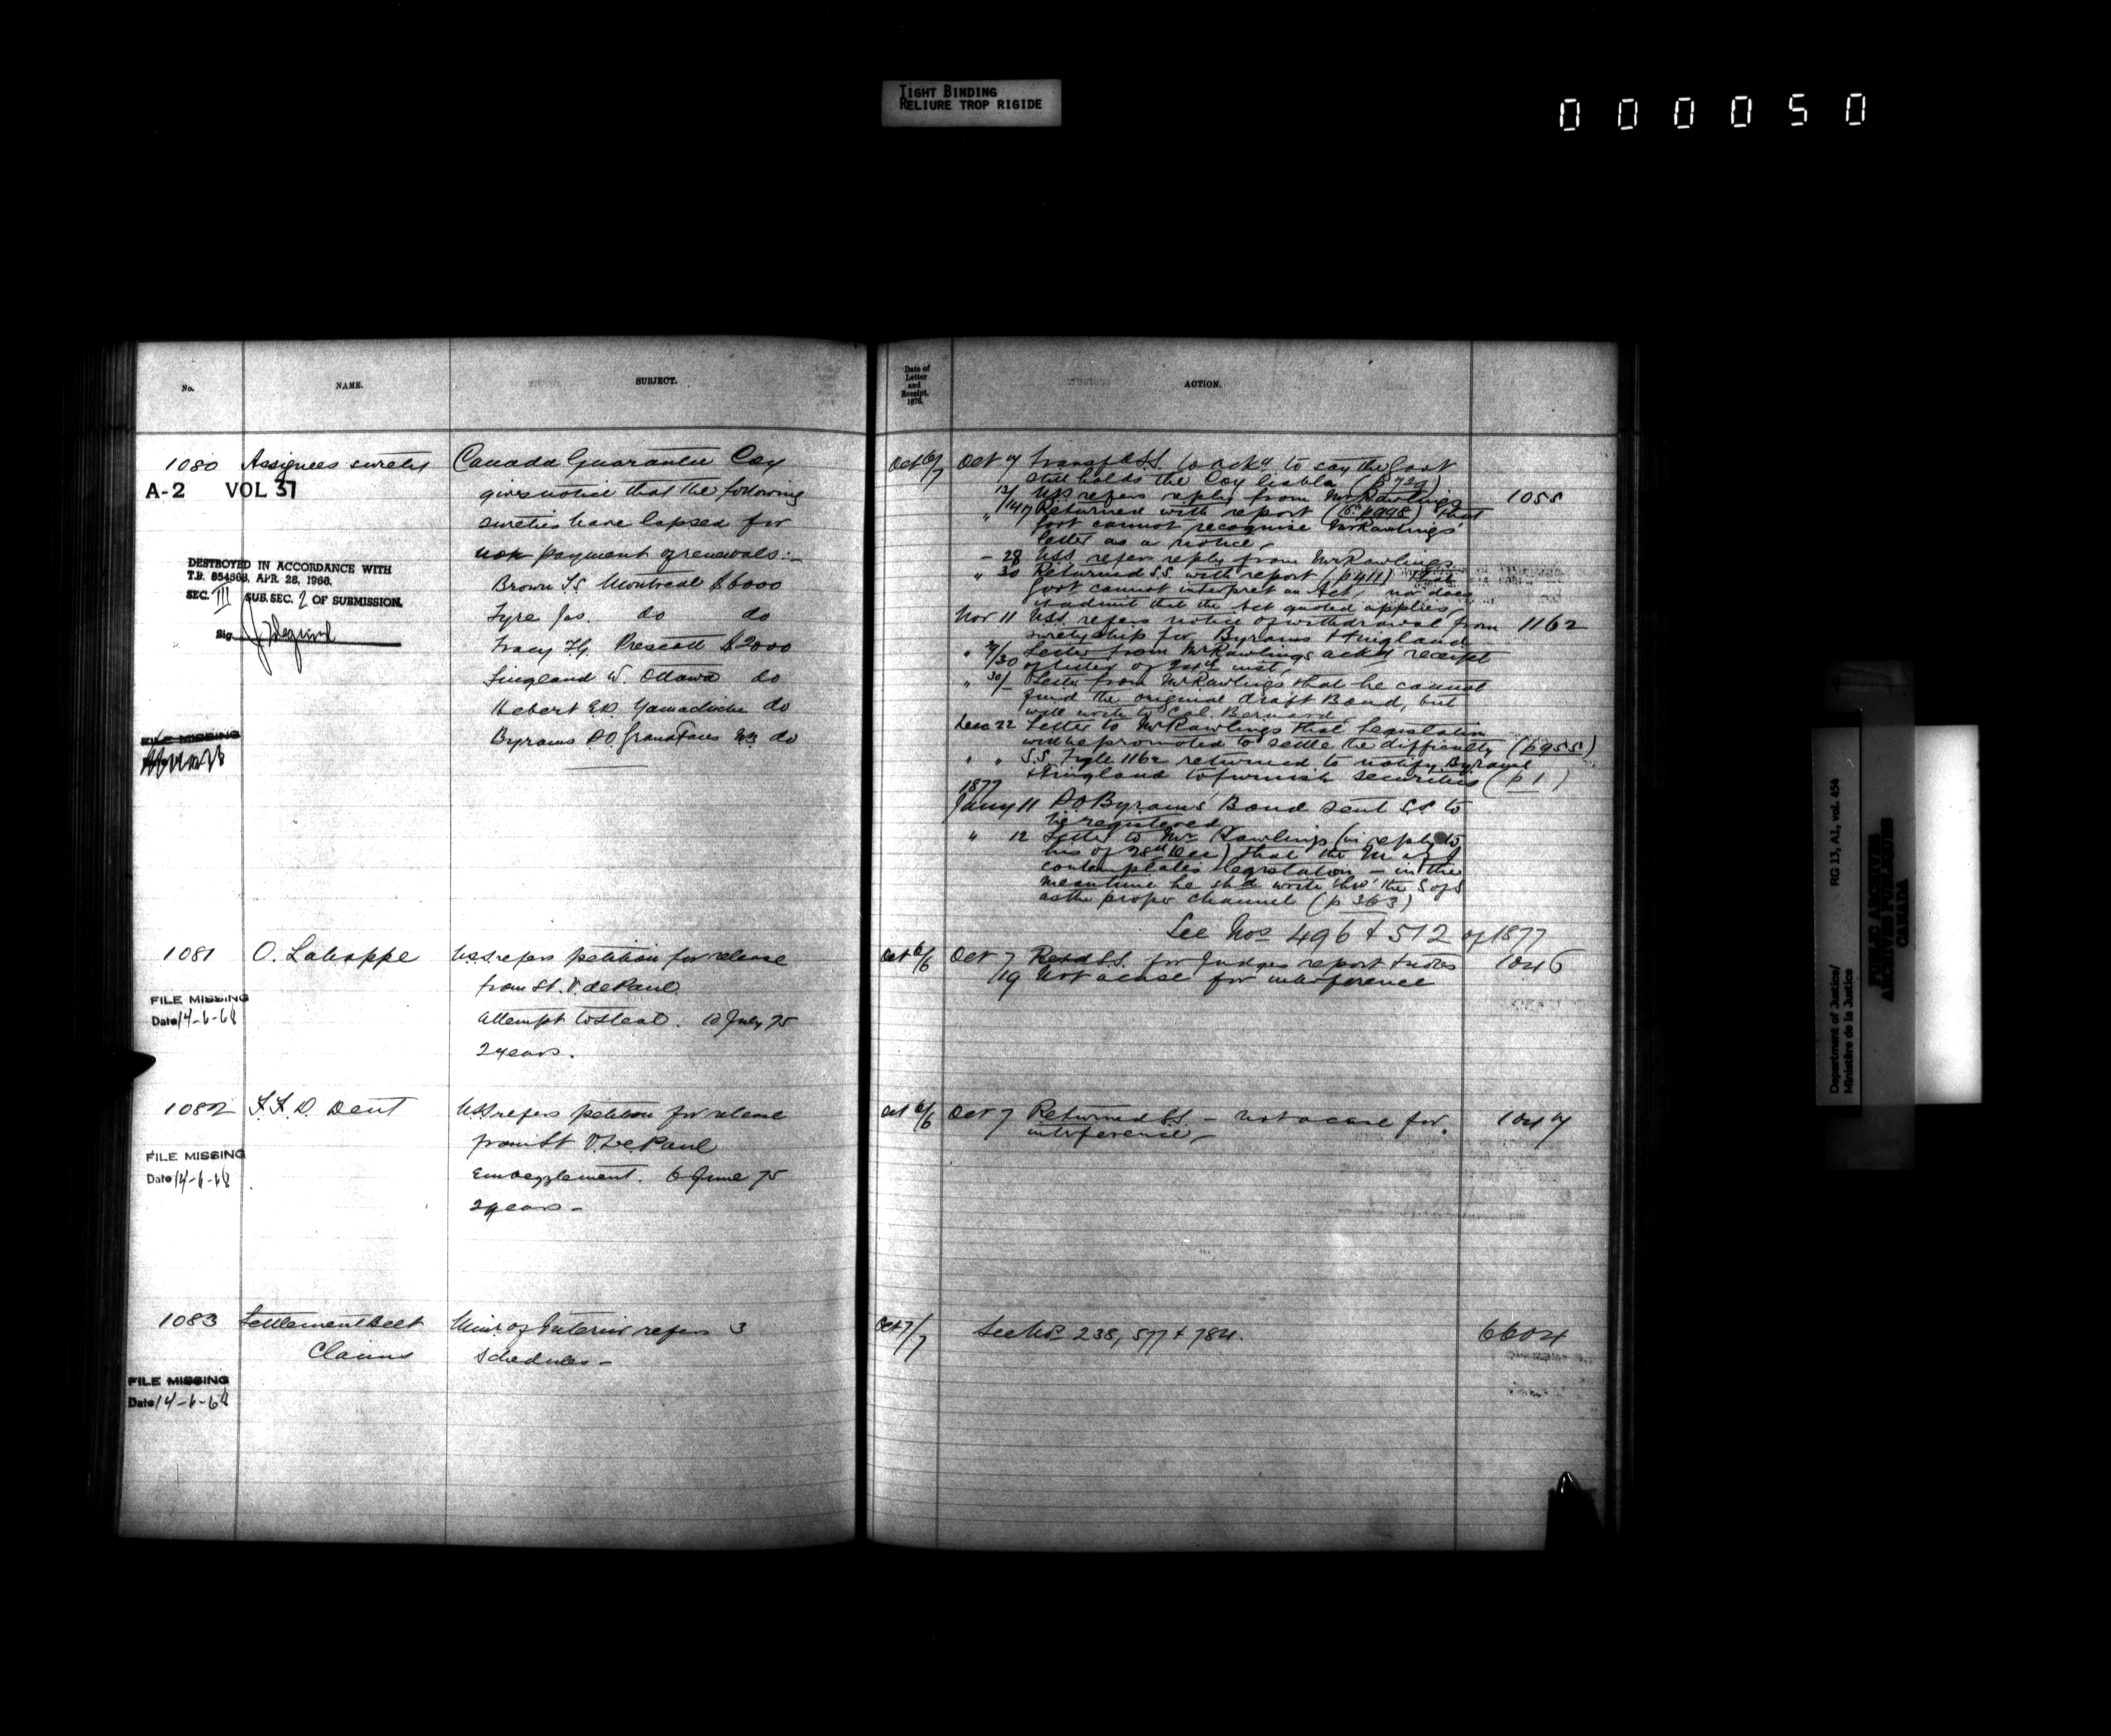 TIGHT BINDING
RELIURE TROP RIGIDE
000050
No.
NAME.
SUBJECT.
1080 Assignees surety Canada Guarantee Coy
A-2 VOL 37
gives notice that the following
sureties have lapsed for
non payment of renewals:-
DESTROYED IN ACCORDANCE WITH
T.B. APR. 28, 1966.
SEC. III SUB. SEC. 2 OF SUBMISSION.
Sig.
Brown T.S. Montreal $6000
Fyre Jas. do do
Tracy Prescott $2000
W. Ottawa do
Hebert E.D. Yamachiche do
Byrams P.O. Grand Falls NB do
FILE MISSING
1081 O. Lahappe U.S.S. refers petition for release
from St. V. de Paul.
FILE MISSING
Date 14-6-68
attempt to steal. July 75
2 years.
1082 F.F.D. Dent U.S.S. refers petition for release
from St V. de Paul
FILE MISSING
Date 14-6-68
Embezzlement. 6 June 75
2 years -
1083 Settlement Belt Minr of Interior refers 3
Claims schedules -
FILE MISSING
Date 14-6-68
Date of
Letter
and
Receipt.
1876.
ACTION.
Oct 6/7 Oct 7 Transf S.S. to ackn to say the Govt
still holds the Coy liable (p 729)
13/ USS refers reply from Mr Rawlings 1055
" 14/17 Returned with report (p 998) that
Govt cannot recognise Mr Rawlings'
letter as a notice -
- 28 USS. refers reply from Mr Rawlings
" 30 Returned S.S. with report (p 411) that
Govt cannot interpret an Act, nor does
it admit that the Act quoted applies
Nov 11 USS. refers notice of withdrawal from 1162
suretyship for Byrams &
" /30 Letter from Mr Rawlings ackn receipt
of letter of inst.
" 30/ Letter from Mr Rawlings that he cannot
find the original draft Bond, but
will write to Col. Bernard
Dec 22 Letter to Mr Rawlings that Legislation
will be promoted to settle the difficulty (p 955)
" " S.S. File 1162 returned to notify Byrams
& to furnish securities (p 1)
1877
Jany 11 P.O. Byrams' Bond sent S.S. to
be registered
" 12 Letter to Mr Rawlings (in reply to
his of 28th Dec) that the M of J
contemplates legislation - in the
meantime he shd write thro' the S of S
as the proper channel (p 363)
See Nos 496 & 512 of 1877
Oct 6/6 Oct 7 Retd S.S. for Judges report & notes 1046
/19 Not a case for interference
Oct 6/6 Oct 7 Returned S.S. - not a case for 1047
interference -
Oct 7/7 See Nos 238, 577 & 784. 6604
Department of Justice/
Ministère de la Justice
RG 13, A1, vol. 454
PUBLIC ARCHIVES
ARCHIVES PUBLIQUES
CANADA